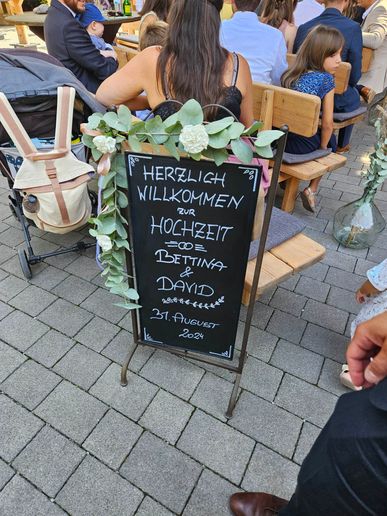 HERZLICH
WILLKOMMEN
ZUR
HOCHZEIT
BETTINA
&
DAVID
31. AUGUST
2024